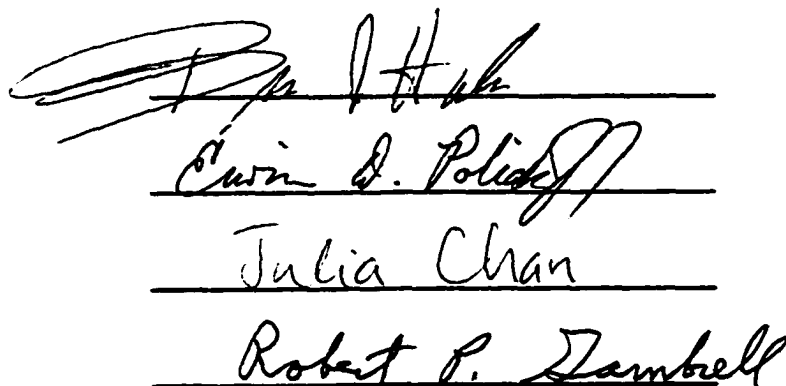 Erwin D. Poliakoff
Julia Chan
Robert P. Gambrell